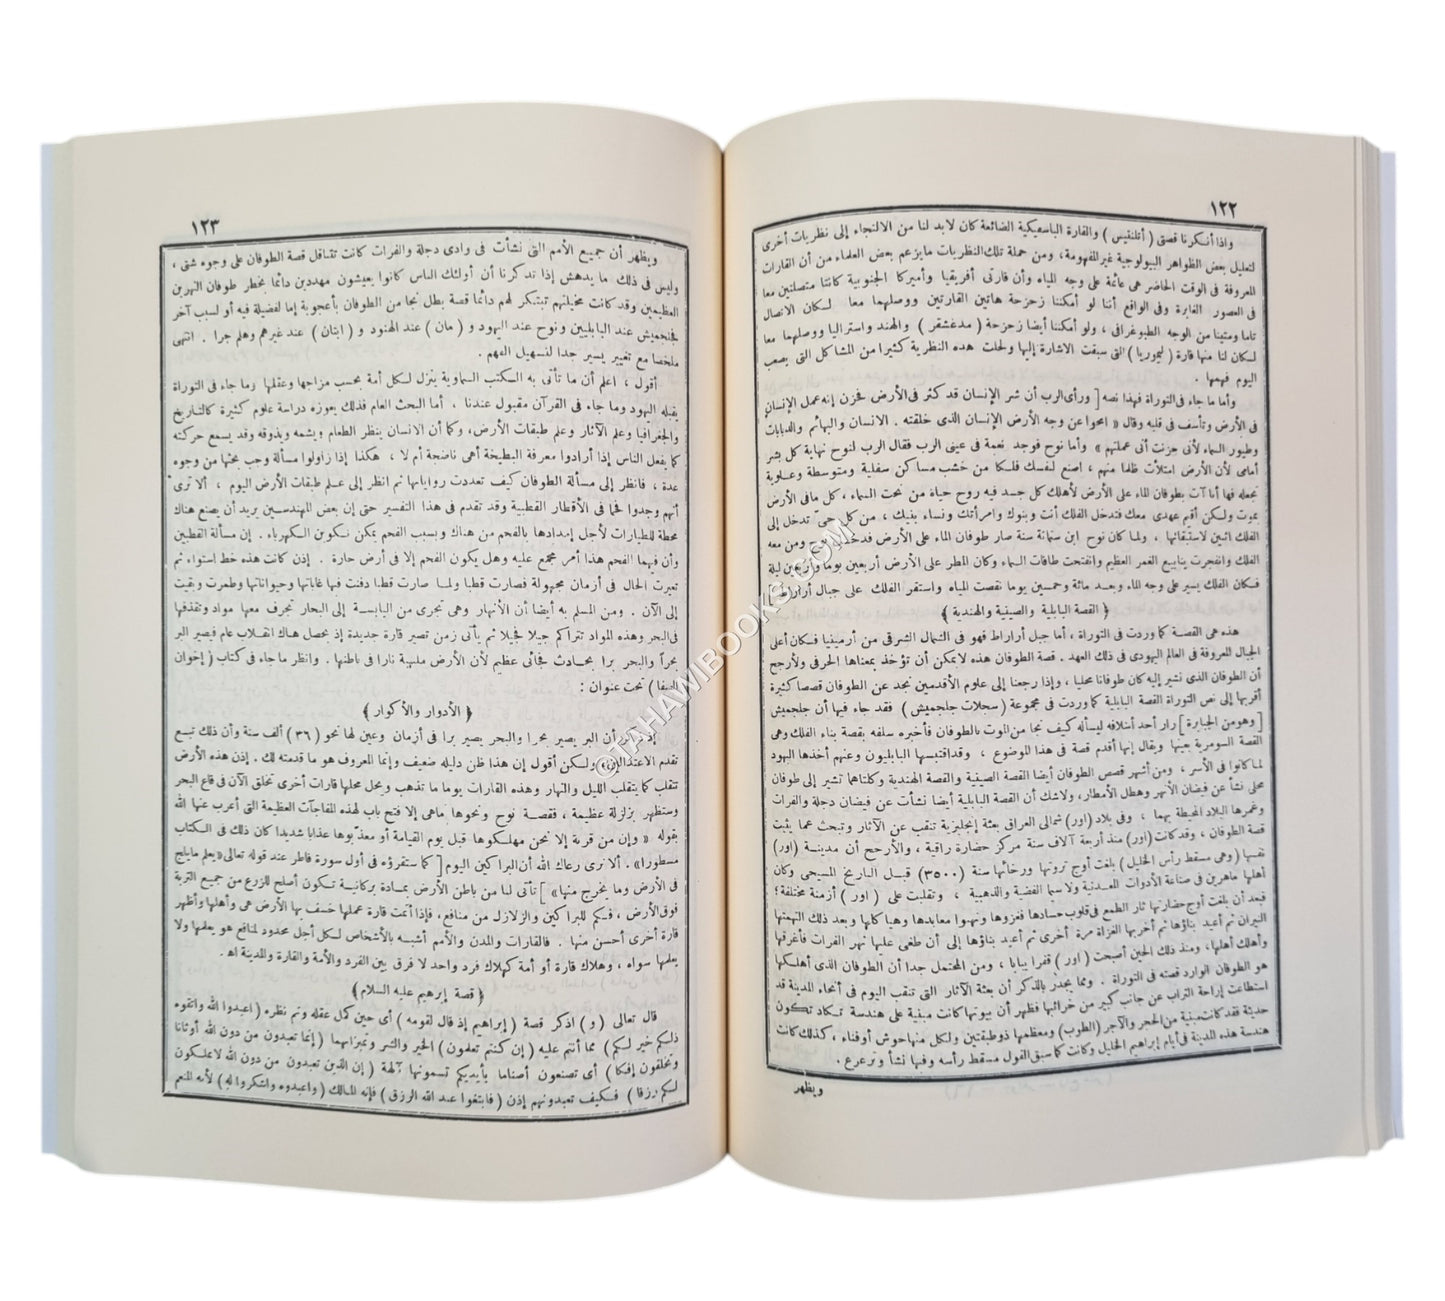 ١٢٢
وإذا أنكرنا قصتى ( أتلنتيس ) والقارة الباسيفيكية الضائعة كان لابد لنا من الالتجاء إلى نظريات أخرى
لتعليل بعض الظواهر البيولوجية غير المفهومة، ومن جملة تلك النظريات مايزعم بعض العلماء من أن القارات
المعروفة فى الوقت الحاضر هى عائمة على وجه المياه وأن قارتى أفريقيا وأميركا الجنوبية كانتا متصلتين معا
فى العصور الغابرة وفى الواقع أننا لو أمكننا زحزحة هاتين القارتين ووصلهما معا لكان الاتصال
تاما ومتينا من الوجه الطبوغرافى ، ولو أمكننا أيضا زحزحة ( مدغشقر ) والهند واستراليا ووصلهما معا
لكان لنا منها قارة ( ليموريا ) التى سبقت الاشارة إليها ولحلت هذه النظرية كثيرا من المشاكل التى يصعب
اليوم فهمها .
وأما ما جاء فى التوراة فهذا نصه [ ورأى الرب أن شر الإنسان قد كثر فى الأرض فحزن إنه عمل الإنسان
فى الأرض وتأسف فى قلبه وقال « امحوا عن وجه الأرض الإنسان الذى خلقته . الانسان والبهائم والدبابات
وطيور السماء لأنى حزنت أنى عملتهم » وأما نوح فوجد نعمة فى عينى الرب فقال الرب لنوح نهاية كل بشر
أمامى لأن الأرض امتلأت ظلما منهم ، اصنع لنفسك فلكا من خشب مساكن سفلية ومتوسطة وعلوية
تجعله فها أنا آت بطوفان الماء على الأرض لأهلك كل جسد فيه روح حياة من تحت السماء، كل مافى الأرض
يموت ولكن أقيم عهدى معك فتدخل الفلك أنت وبنوك وامرأتك ونساء بنيك ، من كل حىّ تدخل إلى
الفلك اثنين لاستبقائها . ولما كان نوح ابن ستمائة سنة صار طوفان الماء على الأرض فدخل نوح ومن معه
الفلك وانفجرت ينابيع الغمر العظيم وانفتحت طاقات السماء وكان المطر على الأرض أربعين يوما وأربعين ليلة
فكان الفلك يسير على وجه الماء وبعد مائة وخمسين يوما نقصت المياه واستقر الفلك على جبال أراراط ]
﴿ القصة البابلية والصينية والهندية ﴾
هذه هى القصة كما وردت فى التوراة ، أما جبل أراراط فهو فى الشمال الشرقى من أرمينيا فكان أعلى
الجبال المعروفة فى العالم اليهودى فى ذلك العهد . قصة الطوفان هذه لايمكن أن تؤخذ بمعناها الحرفى ولأرجح
أن الطوفان الذى نشير إليه كان طوفانا محليا ، وإذا رجعنا إلى علوم الأقدمين نجد عن الطوفان قصصا كثيرة
أقربها إلى نص التوراة القصة البابلية كما وردت فى مجموعة ( سجلات جلجميش ) فقد جاء فيها أن جلجميش
[ وهو من الجبابرة ] زار أحد أسلافه ليسأله كيف نجا من الموت بالطوفان فأخبره سلفه بقصة بناء الفلك وهى
القصة السومرية عينها ويقال إنها أقدم قصة فى هذا الموضوع ، وقد اقتبسها البابليون وعنهم أخذها اليهود
لما كانوا فى الأسر ، ومن أشهر قصص الطوفان أيضا القصة الصينية والقصة الهندية وكلتاهما تشير إلى طوفان
محلى نشأ عن فيضان الأنهر وهطل الأمطار، ولاشك أن القصة البابلية أيضا نشأت عن فيضان دجلة والفرات
وغمرها البلاد المحيطة بهما ، وفى بلاد (اور) شمالى العراق بعثة إنجليزية تنقب عن الآثار وتبحث عما يثبت
قصة الطوفان ، وقد كانت (اور) منذ أربعة آلاف سنة مركز حضارة راقية ، والأرجح أن مدينة (اور)
نفسها (وهى مسقط رأس الخليل) بلغت أوج ثروتها ورخائها سنة (٣٥٠٠) قبل التاريخ المسيحى وكان
أهلها ماهرين فى صناعة الأدوات المعدنية ولا سيما الفضية والذهبية ، وتقلبت على ( اور ) أزمنة مختلفة ؛
فبعد أن بلغت أوج حضارتها ثار الطمع فى قلوب حسادها فغزوها ونهبوا معابدها وهياكلها وبعد ذلك التهمتها
النيران ثم أعيد بناؤها ثم أخربها الغزاة مرة أخرى ثم أعيد بناؤها إلى أن طغى عليها نهر الفرات فأغرقها
وأهلك أهلها، ومنذ ذلك الحين أصبحت ( اور ) قفرا يبابا ، ومن المحتمل جدا أن الطوفان الذى أهلكها
هو الطوفان الوارد قصته فى التوراة . ومما يجدر بالذكر أن بعثة الآثار التى تنقب اليوم فى أنحاء المدينة قد
استطاعت إزاحة التراب عن جانب كبير من خرائبها فظهر أن بيوتها كانت مبنية على هندسة تكاد تكون
حديثة فقد كانت مبنية من الحجر والآجر (الطوب) ومعظمها ذوطبقتين ولكل منها حوش أوفناء ، كذلك كانت
هندسة هذه المدينة فى أيام إبراهيم الخليل وكانت كما سبق القول مسقط رأسه وفيها نشأ وترعرع .
ويظهر
١٢٣
ويظهر أن جميع الأمم التى نشأت فى وادى دجلة والفرات كانت تتناقل قصة الطوفان على وجوه شتى ،
وليس فى ذلك ما يدهش إذا تذكرنا أن أولئك الناس كانوا يعيشون مهددين دائما بخطر طوفان النهرين
العظيمين وقد كانت مخيلتهم تبتكر لهم دائما قصة بطل نجا من الطوفان بأعجوبة إما لفضيلة فيه أو لسبب آخر
فجلجميش عند البابليين ونوح عند اليهود و ( مان ) عند الهنود و ( ابنان ) عند غيرهم وهلم جرا . انتهى
ملخصا مع تغيير يسير جدا لتسهيل الفهم .
أقول ، اعلم أن ما تأتى به الكتب السماوية ينزل لكل أمة بحسب مزاجها وعقلها وما جاء فى التوراة
يقبله اليهود وما جاء فى القرآن مقبول عندنا . أما البحث العام فذلك يعوزه دراسة علوم كثيرة كالتاريخ
والجغرافيا وعلم الآثار وعلم طبقات الأرض، وكما أن الانسان ينظر الطعام ويشمه ويذوقه وقد يسمع حركته
كما يفعل الناس إذا أرادوا معرفة البطيخة أهى ناضجة أم لا ، هكذا إذا زاولوا مسألة وجب بحثها من وجوه
عدة ، فانظر إلى مسألة الطوفان كيف تعددت رواياتها ثم انظر إلى علم طبقات الأرض اليوم ، ألا ترى
أنهم وجدوا فحما فى الأقطار القطبية وقد تقدم فى هذا التفسير حتى إن بعض المهندسين يريد أن يصنع هناك
محطة للطيارات لأجل إمدادها بالفحم من هناك وبسبب الفحم يمكن تكوين الكهرباء . إن مسألة القطبين
وأن فيهما الفحم هذا أمر مجمع عليه وهل يكون الفحم إلا فى أرض حارة . إذن كانت هذه خط استواء ثم
تغيرت الحال فى أزمان مجهولة فصارت قطبا ولما صارت قطبا دفنت فيها غاباتها وحيواناتها وطمرت وبقيت
إلى الآن . ومن المسلم به أيضا أن الأنهار وهى تجرى من اليابسة إلى البحار تجرف معها مواد وتقذفها
فى البحر وهذه المواد تتراكم جيلا فجيلا ثم يأتى زمن تصير قارة جديدة إذ يحصل هناك انقلاب عام فيصير البر
بحراً والبحر برا بحادث فجائى عظيم لأن الأرض ملتهبة نارا فى باطنها . وانظر ما جاء فى كتاب ( إخوان
الصفا ) تحت عنوان :
﴿ الأدوار والأكوار ﴾
إذ ذكر أن البر يصير بحرا والبحر يصير برا فى أزمان وعين لها نحو (٣٦) ألف سنة وأن ذلك تبع
تقدم الاعتدالين، ولكن أقول إن هذا ظن دليله ضعيف وإنما المعروف هو ما قدمته لك . إذن هذه الأرض
تتقلب كما يتقلب الليل والنهار وهذه القارات يوما ما تذهب ويحل محلها قارات أخرى تخلق الآن فى قاع البحر
وستظهر بزلزلة عظيمة ، فقصة نوح ونحوها ماهى إلا فتح باب لهذه المفاجآت العظيمة التى أعرب عنها الله
بقوله « وإن من قرية إلا نحن مهلكوها قبل يوم القيامة أو معذبوها عذابا شديدا كان ذلك فى الكتاب
مسطورا » . ألا ترى رعاك الله أن البراكين اليوم [ كما ستقرؤه فى أول سورة فاطر عند قوله تعالى « يعلم مايلج
فى الأرض وما يخرج منها » ] تأتى لنا من باطن الأرض بمادة بركانية تكون أصلح للزرع من جميع التربة
فوق الأرض ، فكم للبراكين والزلازل من منافع، فإذا أتمت قارة عملها خسف بها الأرض هى وأهلها وأظهر
قارة أخرى أحسن منها . فالقارات والمدن والأمم أشبه بالأشخاص لكل أجل محدود لمنافع هو يعلمها ولا
يعلمها سواه ، وهلاك قارة أو أمة كهلاك فرد واحد لا فرق بين الفرد والأمة والقارة والمدينة اه .
﴿ قصة إبراهيم عليه السلام ﴾
قال تعالى ( و ) اذكر قصة ( إبراهيم إذ قال لقومه ) أى حين كمل عقله وتم نظره ( اعبدوا الله واتقوه
ذلكم خير لكم ) مما أنتم عليه ( إن كنتم تعلمون ) الخير والشر وتميزانهما ( إنما تعبدون من دون الله أوثانا
وتخلقون إفكا ) أى تصنعون أصناما بأيديكم تسمونها آلهة ( إن الذين تعبدون من دون الله لا يملكون
لكم رزقا ) فكيف تعبدونهم إذن ( فابتغوا عند الله الرزق ) فإنه المالك ( واعبدوه واشكروا له ) لأنه المنعم
©TAHAWIBOOKS.COM